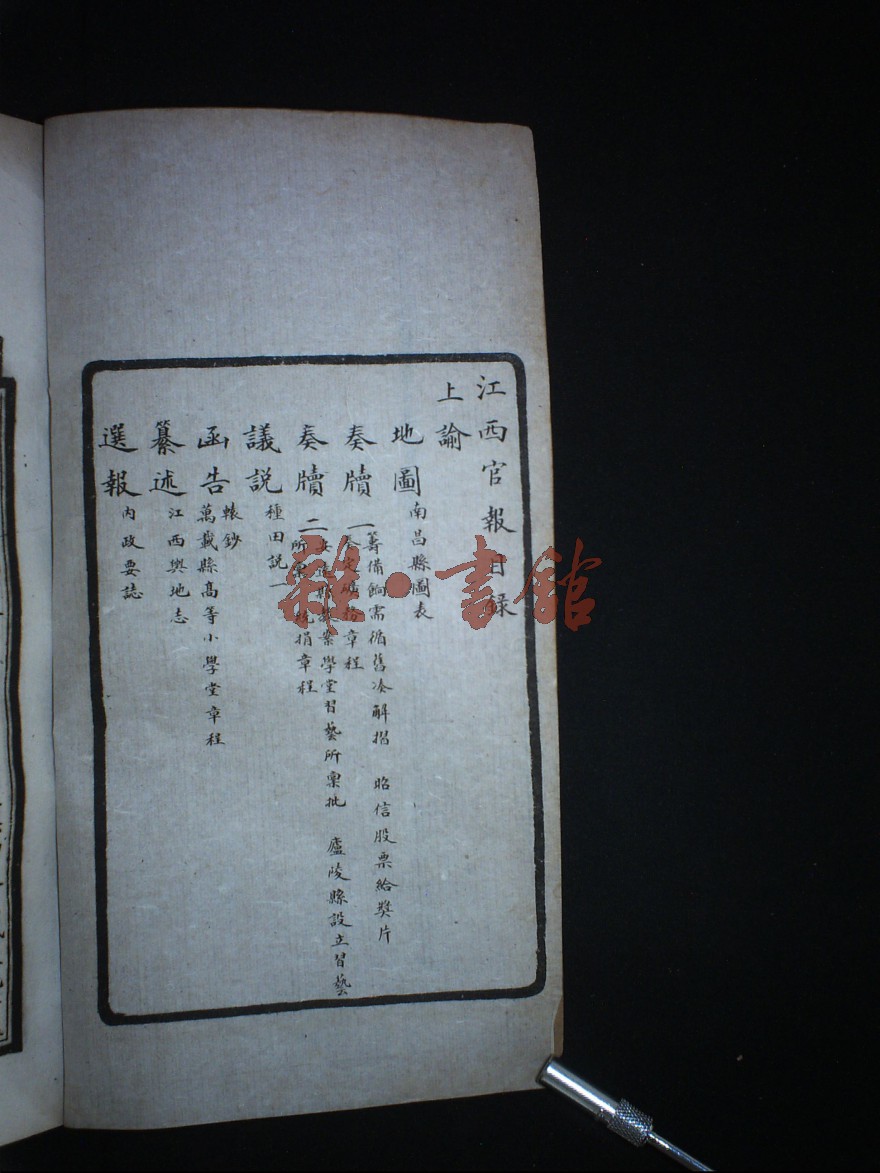 江西官報目錄
上諭
地圖
南昌縣圖表
奏牘一
籌備餉需循舊湊解摺 昭信股票給獎片
定礦務章程
奏牘二
案學堂習藝所稟批 廬陵縣設立習藝
所 統捐章程
議說
種田說一
函告
轅鈔
萬載縣高等小學堂章程
纂述
江西輿地志
選報
內政要誌
雜·書館